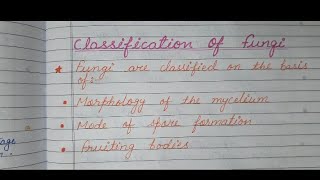 Classification of Fungi
★ Fungi are classified on the basis
of:-
• Morphology of the mycelium
• Mode of spore formation
• Fruiting bodies